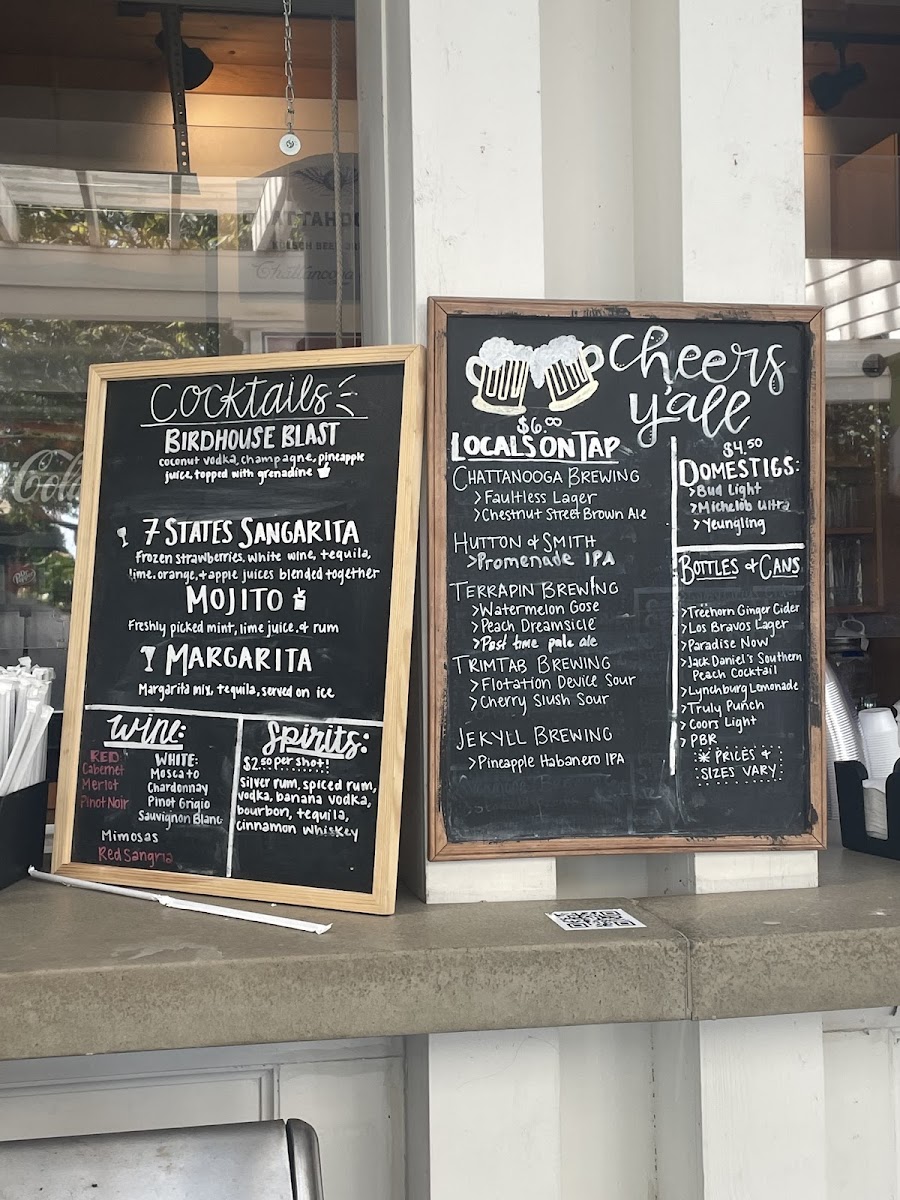 Cocktails
BIRDHOUSE BLAST
coconut vodka, champagne, pineapple
juice, topped with grenadine
7 STATES SANGARITA
Frozen strawberries, white wine, tequila,
lime, orange, + apple juices blended together
MOJITO
Freshly picked mint, lime juice, & rum
MARGARITA
Margarita mix, tequila, served on ice
Wine:
RED:
Cabernet
Merlot
Pinot Noir
WHITE:
Moscato
Chardonnay
Pinot Grigio
Sauvignon Blanc
Mimosas
Red Sangria
Spirits:
$2.50 per shot!
Silver rum, spiced rum,
vodka, banana vodka,
bourbon, tequila,
cinnamon whiskey
cheers
y'all
$6.00
LOCALS ON TAP
CHATTANOOGA BREWING
>Faultless Lager
>Chestnut Street Brown Ale
HUTTON & SMITH
>Promenade IPA
TERRAPIN BREWING
>Watermelon Gose
>Peach Dreamsicle
>Past time pale ale
TRIMTAB BREWING
>Flotation Device Sour
>Cherry Slush Sour
JEKYLL BREWING
>Pineapple Habanero IPA
$4.50
DOMESTIGS:
>Bud Light
>Michelob Ultra
>Yeungling
BOTTLES & CANS
>Treehorn Ginger Cider
>Los Bravos Lager
>Paradise Now
>Jack Daniel's Southern
Peach Cocktail
>Lynchburg Lemonade
>Truly Punch
>Coors Light
>PBR
* PRICES &
SIZES VARY